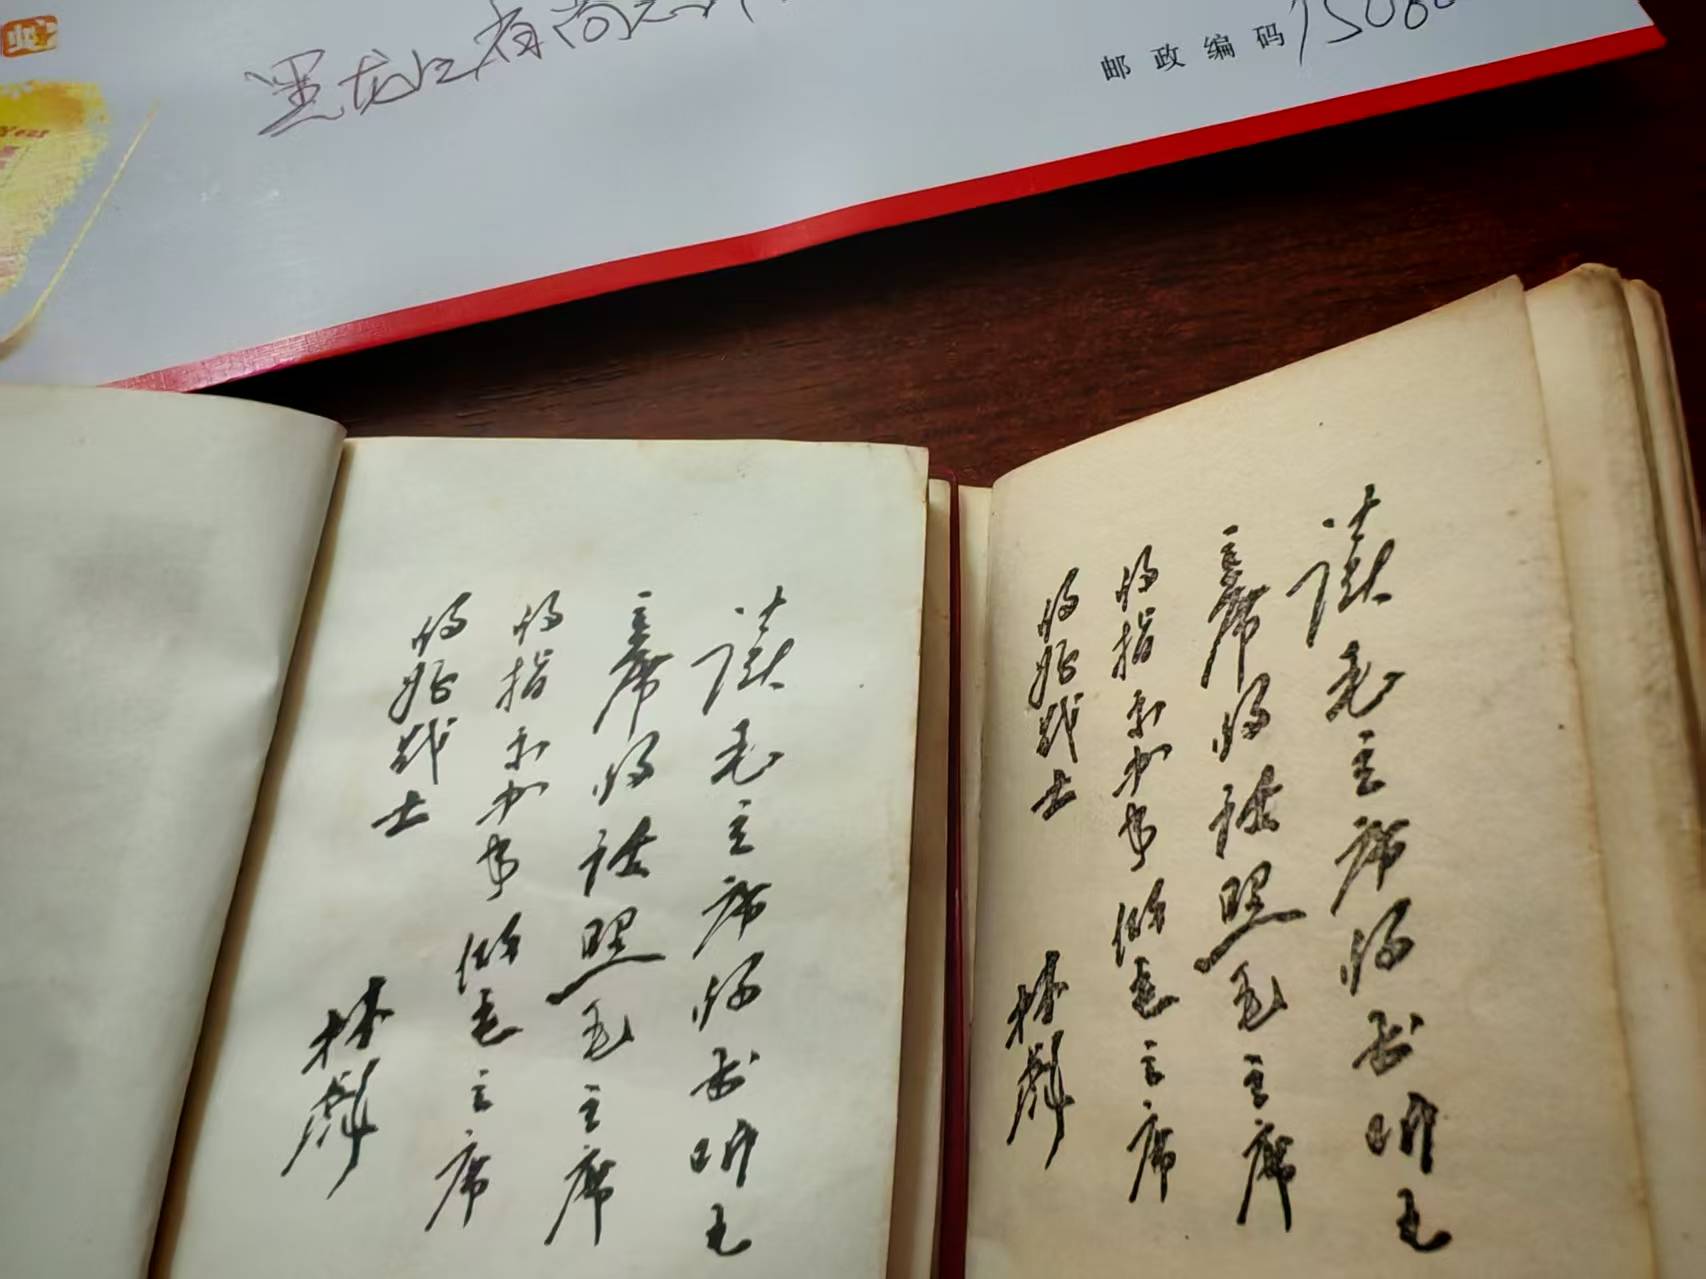 黑龙江省尚志市
邮政编码 1506
Year
读毛主席的书听毛
主席的话照毛主席
的指示办事做毛主席
的好战士
林彪
读毛主席的书听毛
主席的话照毛主席
的指示办事做毛主席
的好战士
林彪